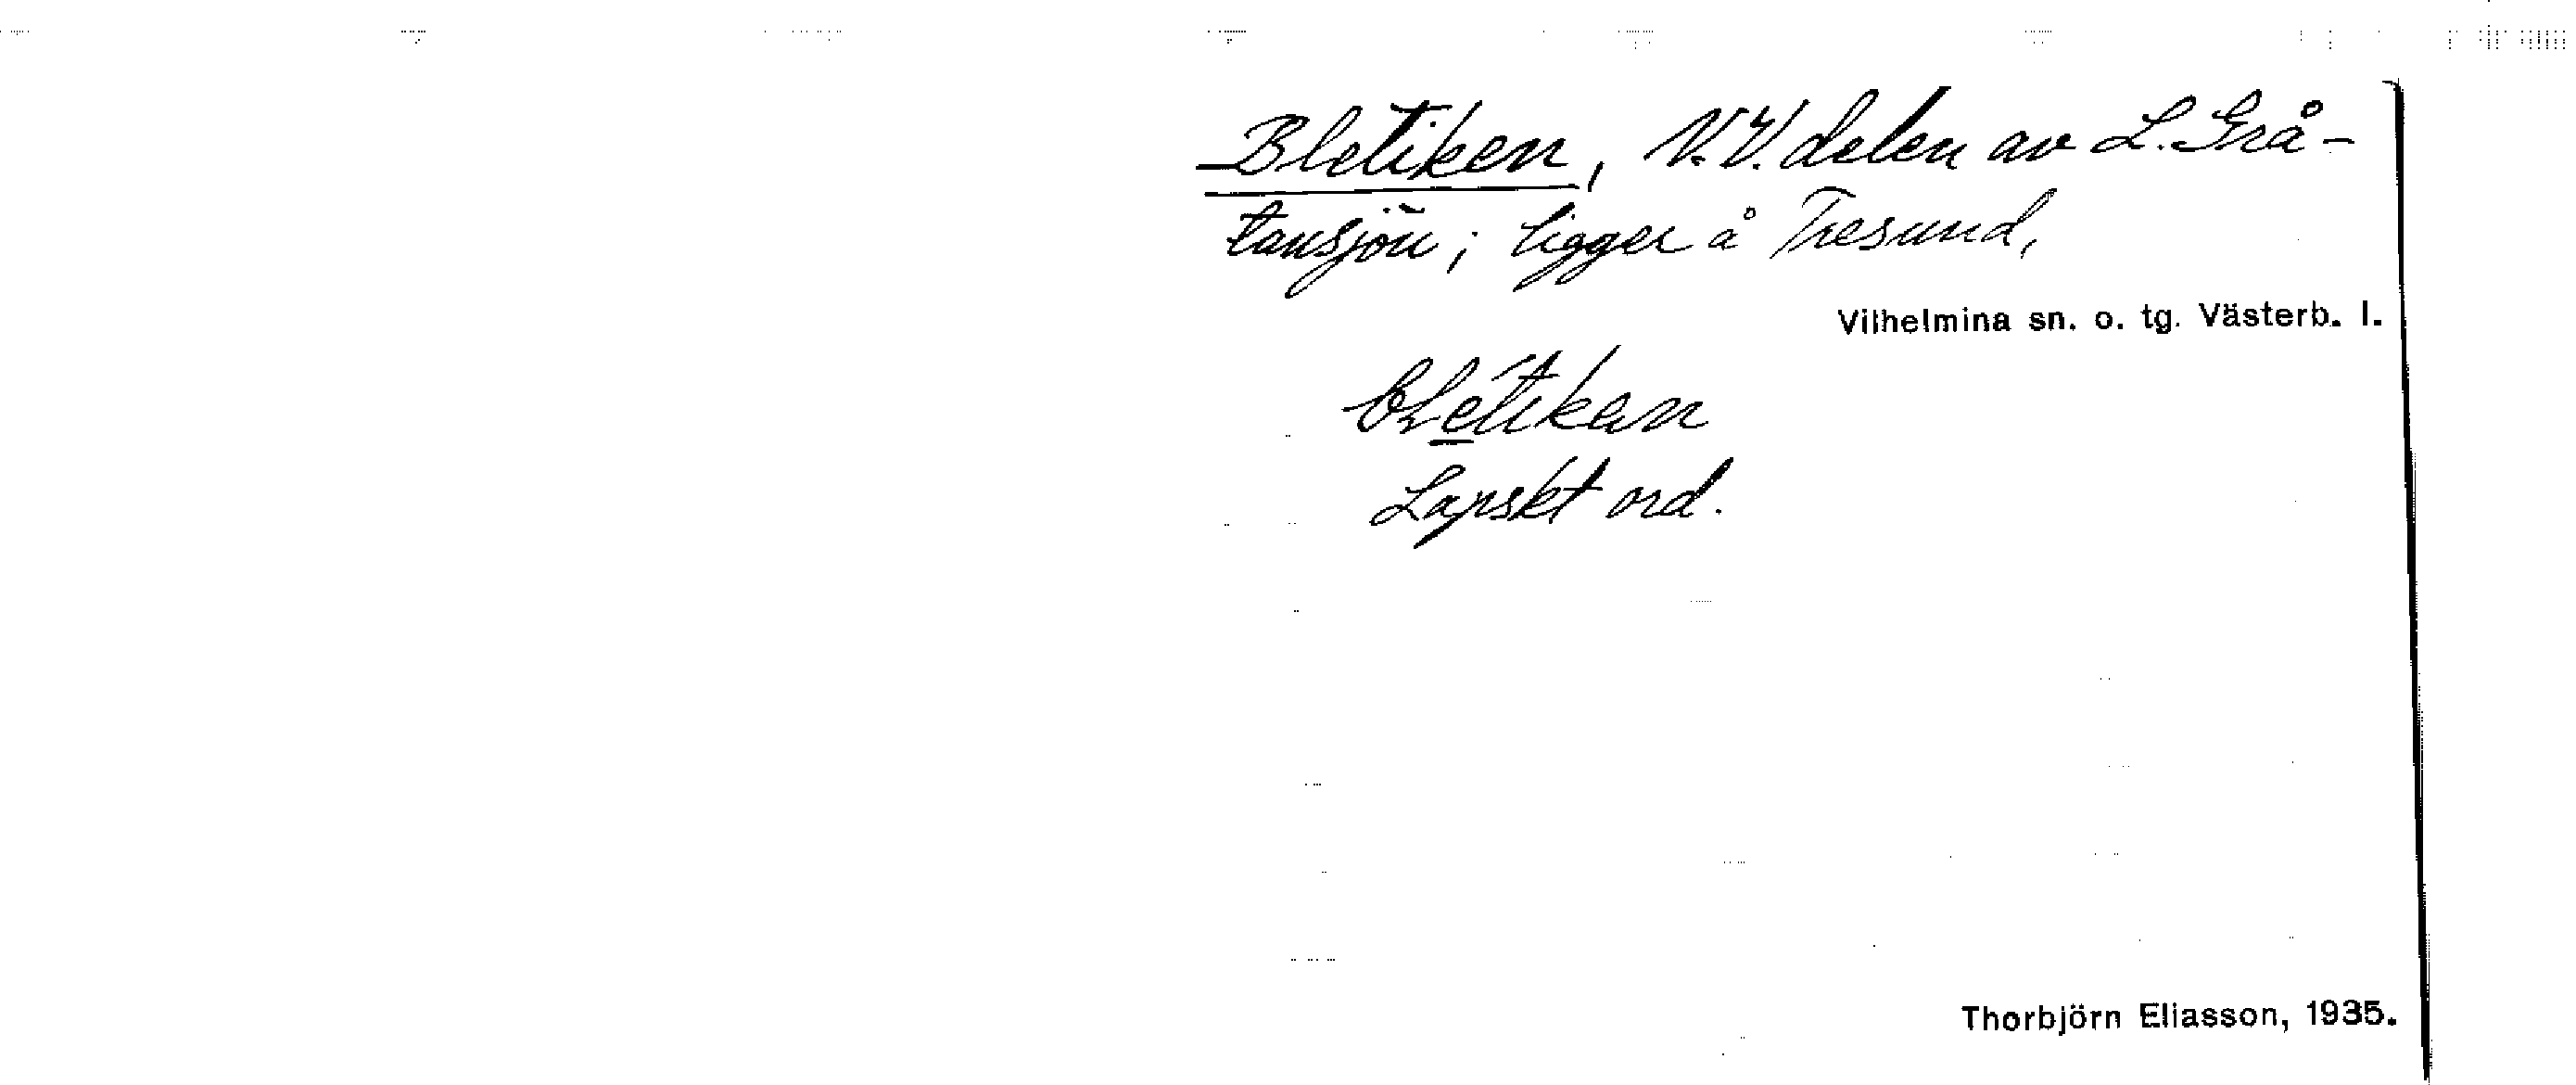 Bletiken, N.V. delen av L. Grå-
tansjön; ligger å Tresund,
Vilhelmina sn. o. tg. Västerb. l.
bletikan
Lapskt ord.
Thorbjörn Eliasson, 1935.